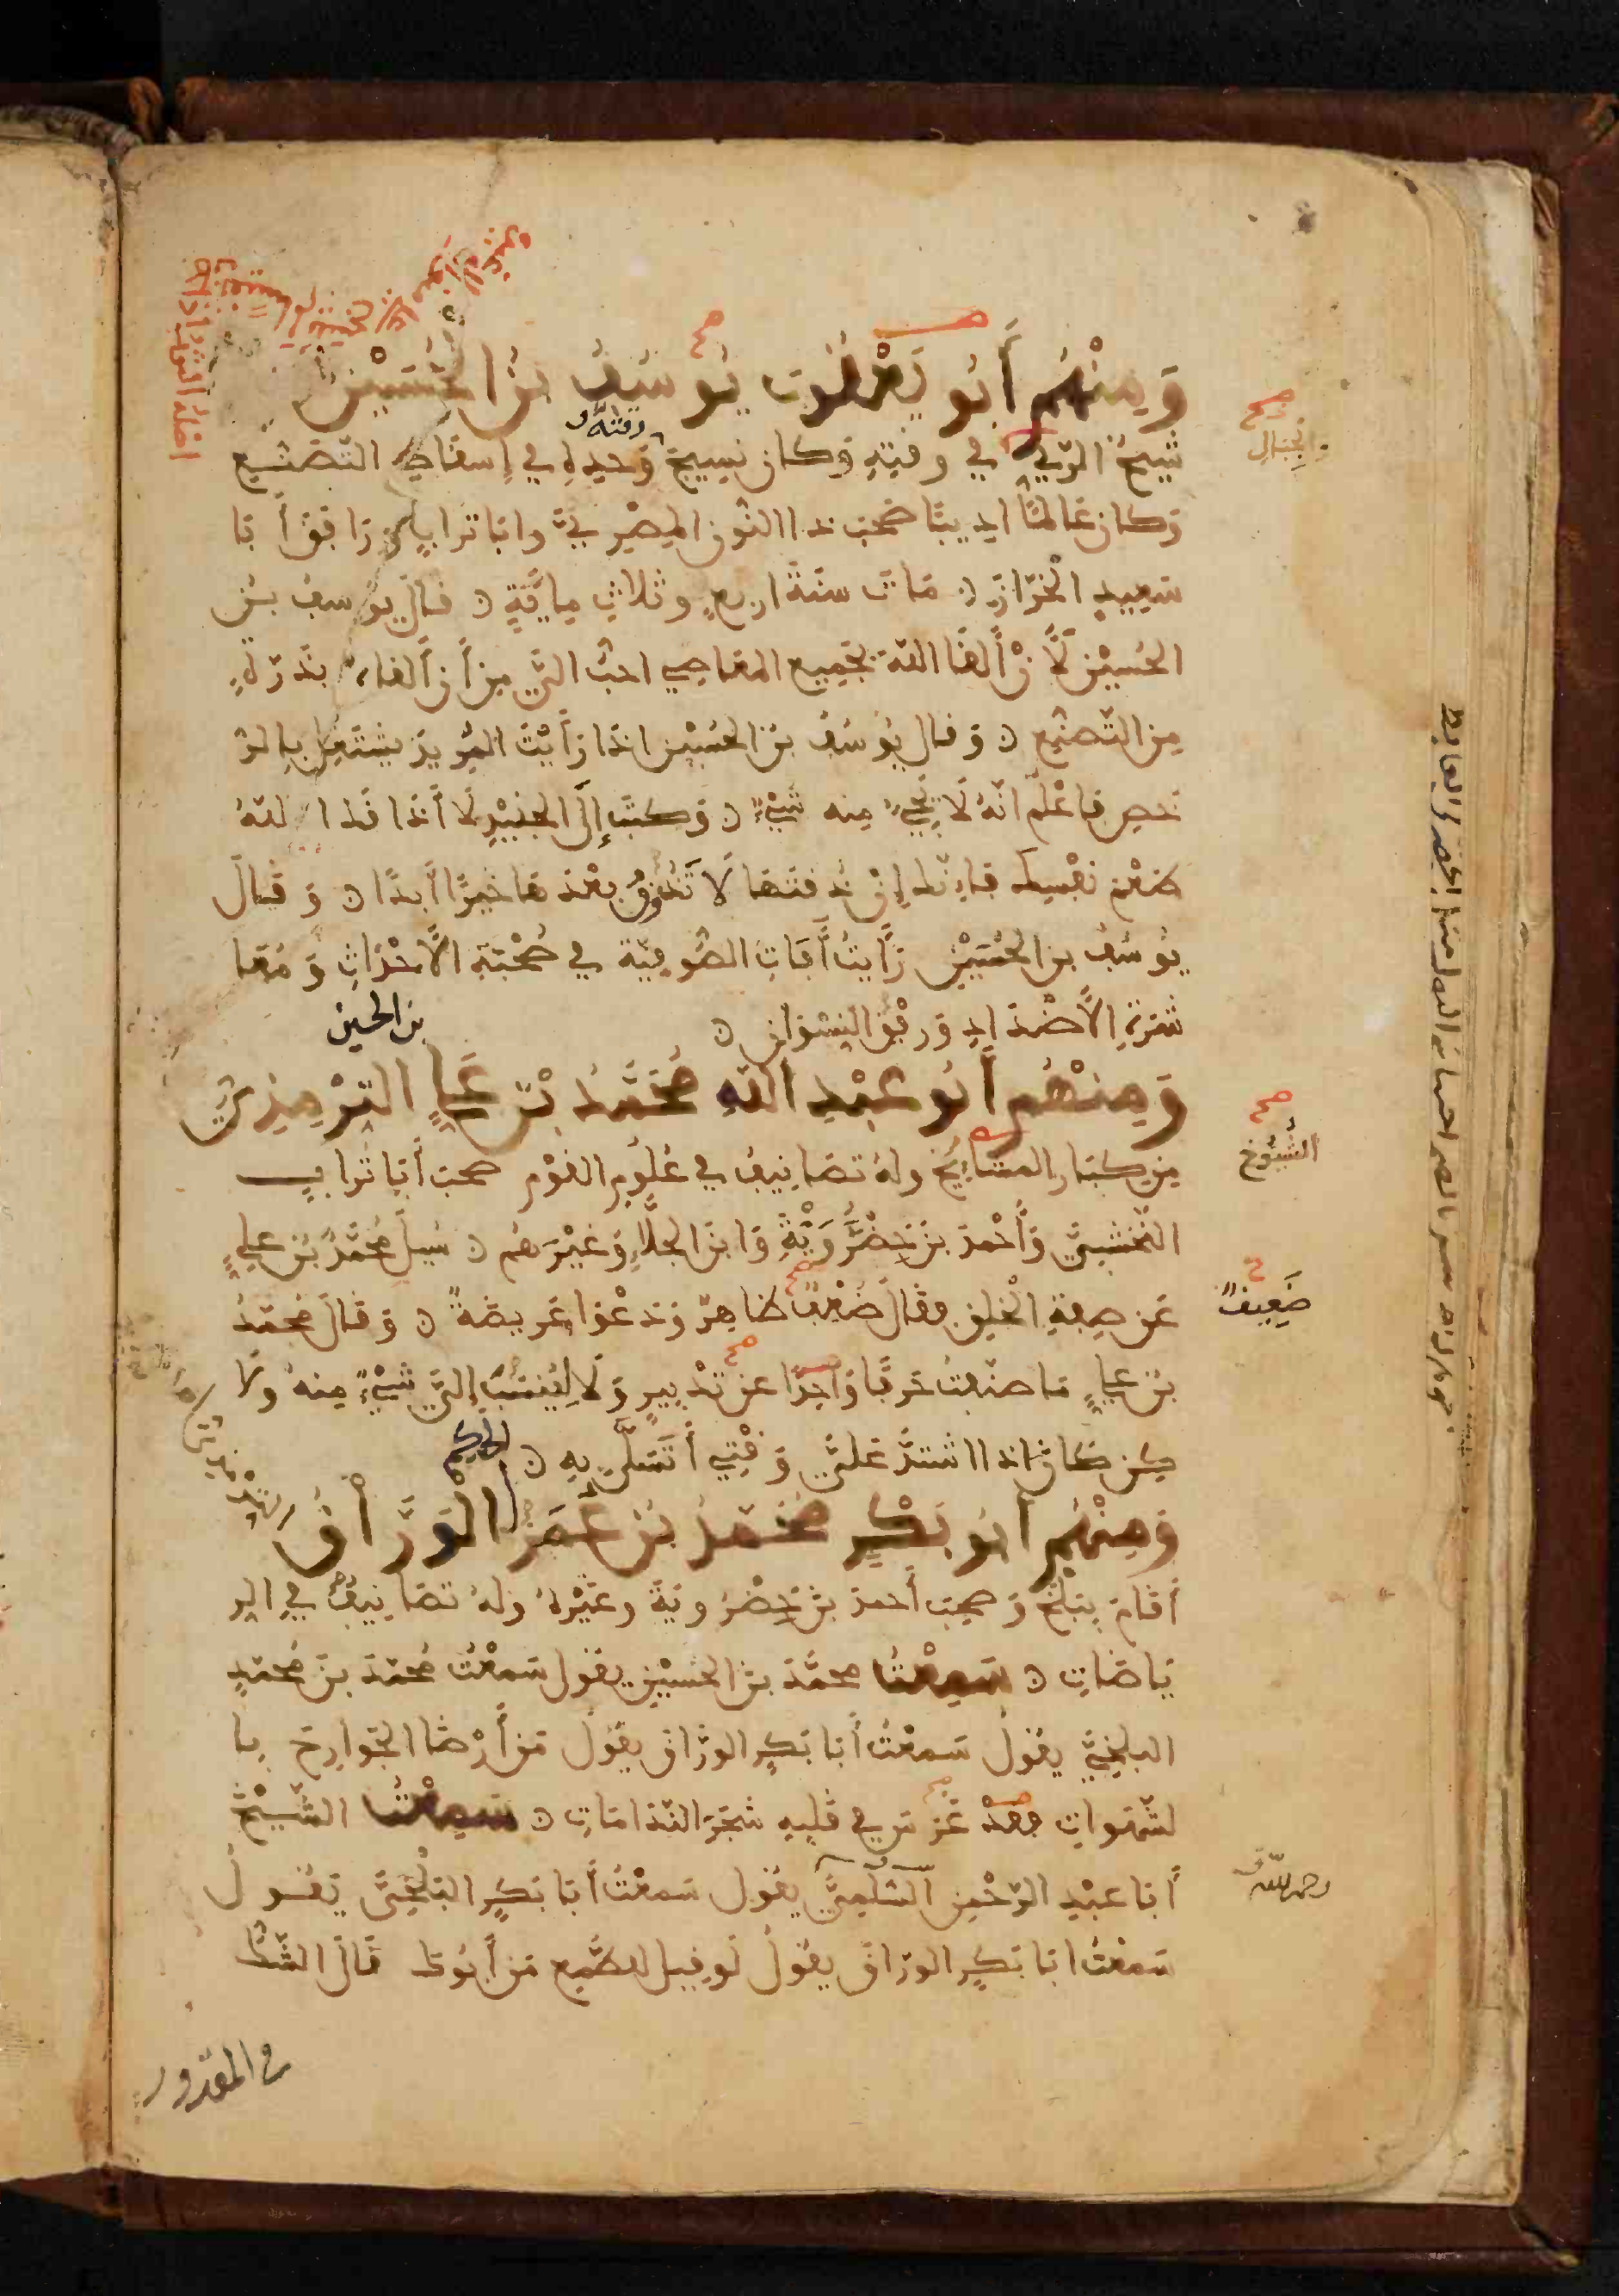 وَمِنْهُم أَبُو يَعْقُوب يُوسُفُ بنُ الحُسَيْن
شيخُ الرّيِّ في وقتِهِ وَكان نسِيجَ وَحيدِهِ في إسقاطِ التّصَنُّع
والجبَالِ
وَكان عَالمًا اديبًا صَحبَ ذا النُّون المِصْرِيَّ وابَا ترابٍ وَرَافقَ أبَا
سَعِيدٍ الخرّازَ ن مَاتَ سنَةَ اربعٍ وثلاثِ مِايَةٍ ن قالَ يُوسفُ بنُ
الحُسَيْنِ لَأَنْ ألقَا اللهَ بجَمِيع المعَاصِي احَبُّ اليَّ مِن أن ألقاهُ بذَرّةٍ
مِن التّصنُّع ن وَقال يُوسُفُ بنُ الحُسَيْنِ اذا رَأيْتَ المُرِيدَ يشتَغِلُ بالرُّ
خصِ فاعْلمْ انّهُ لَا يَجِيُ منه شَيْءٌ ن وَكتَبَ إلَى الجُنَيْدِ لَا أذاقَكَ اللهُ
طَعْمَ نفْسِكَ فإنّكَ إنْ ذُقتَهَا لَا تَذُوقُ بَعْدَهَا خَيرًا أبدًا ن وَقَالَ
يُوسُفُ بن الحُسَيْنِ رَأيتُ أفاتِ الصُّوفِيّة في صُحْبَةِ الأحْدَاثِ وَمُعَا
شَرَةِ الأضْدَادِ وَرفْقِ النِّسْوَانِ ن
بن الحسين
وَمِنْهُم أبُو عَبْدِ اللهِ مُحَمَّدُ بْنُ عَلِيٍّ التِّرْمِذِيُّ
مِن كبَارِ المشَايخ ولهُ تصَانِيفُ في عُلُومِ القَوْمِ صحبَ أبَا تُرابٍ
الشُّيُوخ
النَّخْشَبِيَّ وَأحْمدَ بنَ خِضْرَوَيْةَ وَابنَ الجلَّاءِ وَغَيْرَهُم ن سُيلَ مُحَمَّدُ بنُ عليٍّ
عَن صِفةِ الخَلْقِ فقَالَ ضَعْفٌ ظَاهِرٌ وَدَعْوَا عَرِيضَةٌ ن وَقالَ مُحمّدُ
ضَعِيفٌ
بنُ عليٍّ مَا صنّفتُ حَرفًا وَاحِدًا عن تَدْبِيرٍ وَلَا لِيُنسَبَ إليَّ شَيْءٌ مِنهُ ولَا
كِن كانَ اذا اشتدَّ عَلَيَّ وَقْتِي أتَسَلَّى بِهِ ن
الحكيم
وَمِنْهُم أبُو بَكْرٍ مُحَمّدُ بْنُ عُمَرَ الْوَرَّاقُ
أقَامَ بِبَلْخَ وَصحبَ أحمدَ بن خِضْرُويَةَ وغَيْرَهُ ولهُ تصَانِيفُ في الرِّ
يَاضَاتِ ن سَمِعْتُ محمَّدَ بنَ الحُسَيْنِ يقول سَمعْتُ مُحمّدَ بنَ مُحمّدٍ
البلخيَّ يقولُ سَمعْتُ أبَا بَكرٍ الورّاقَ يقُولُ مَن أرْضَا الجَوارِحَ بِا
لشَّهَواتِ فقدْ غَرَسَ في قلبِهِ شجَرَ النّدَامَاتِ ن سَمِعْتُ الشَّيْخَ
أبَا عبْدِ الرّحْمنِ السُّلَمِيَّ يقُول سَمعْتُ أبَا بَكرٍ البَلْخِيَّ يَقُولُ
رحمه الله
سَمعْتُ ابَا بَكرٍ الورّاقَ يقُولُ لَو قِيلَ للطَّمَعِ مَن أبُوكَ قَالَ الشّكُّ
في المقدور